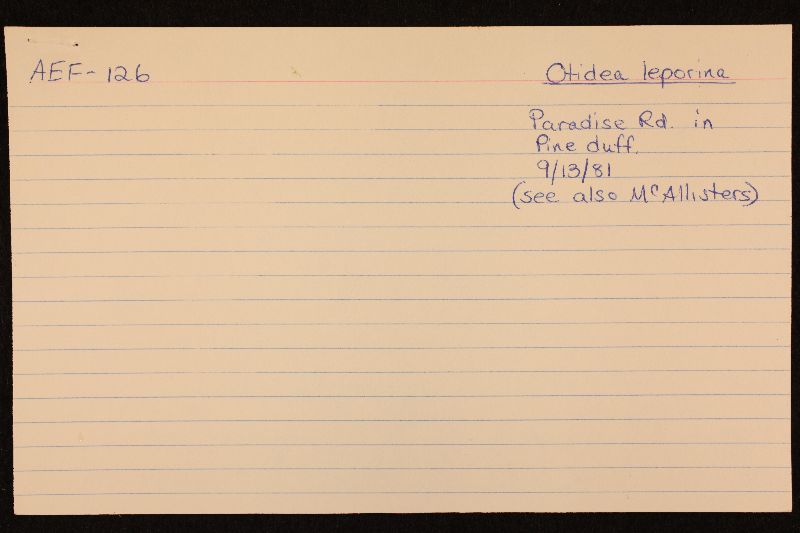 AEF-126
Otidea leporina
Paradise Rd. in
Pine duff.
9/13/81
(see also McAllisters)